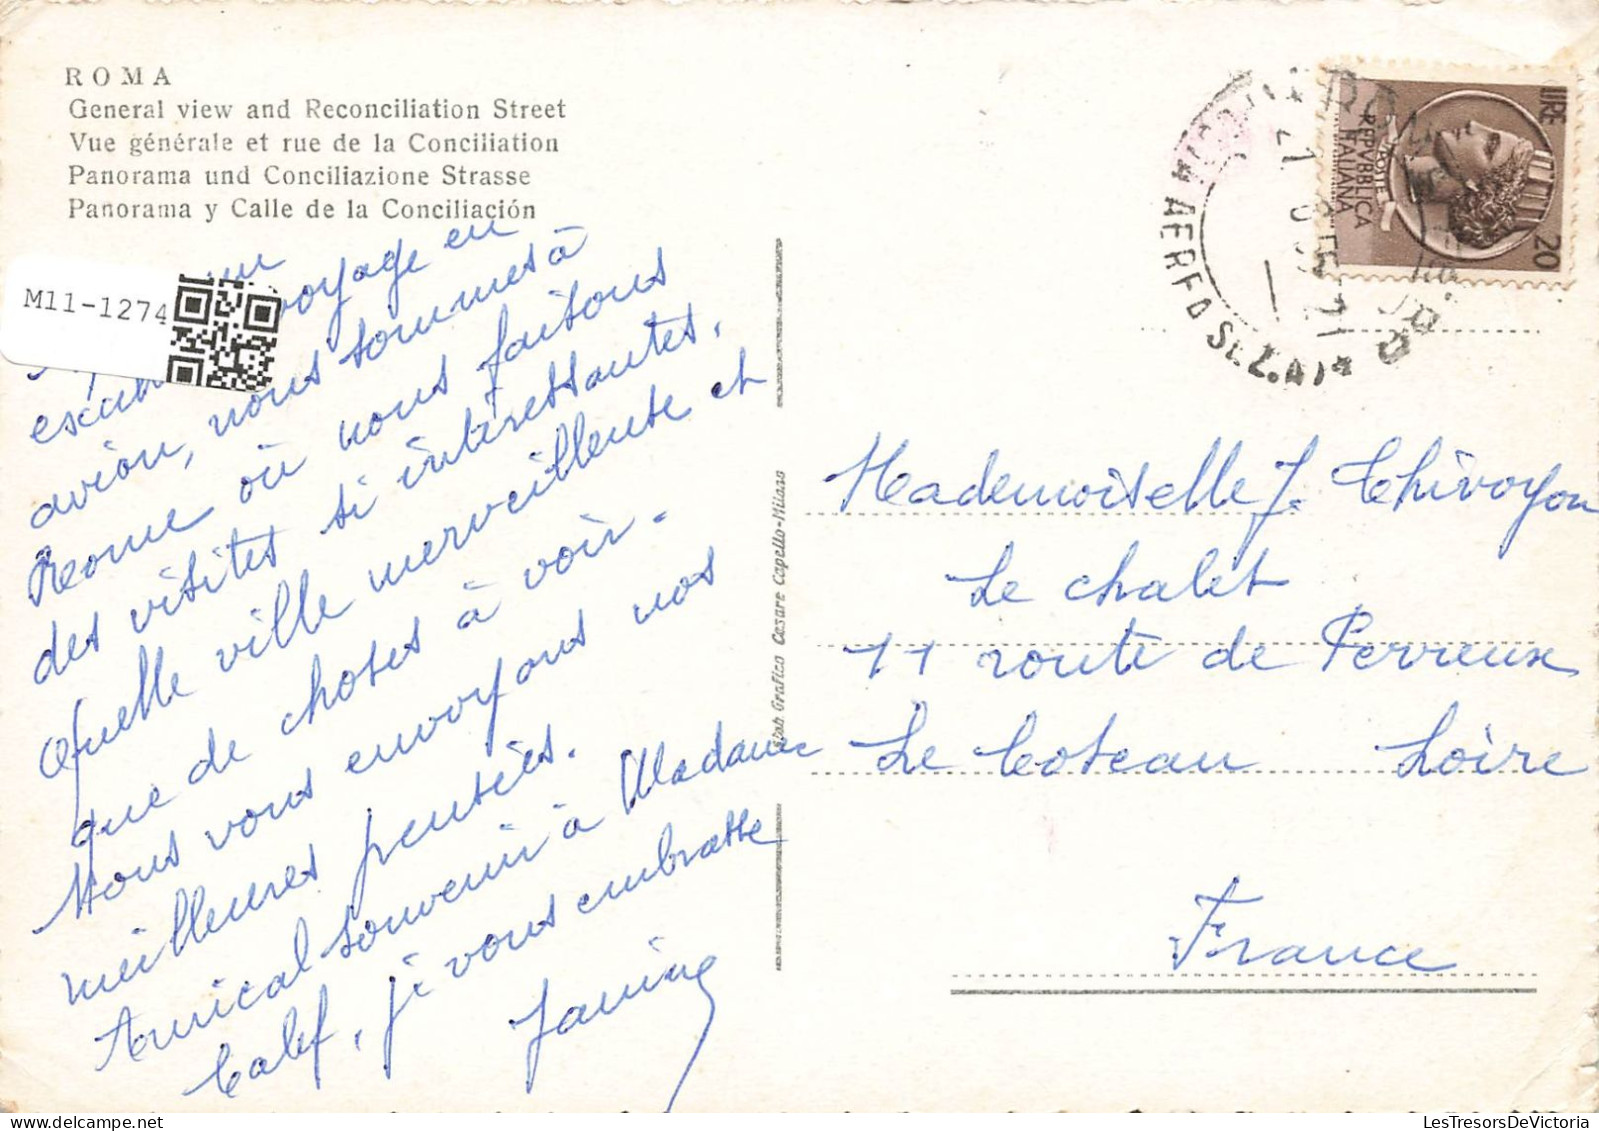 ROMA
General view and Reconciliation Street
Vue générale et rue de la Conciliation
Panorama und Conciliazione Strasse
Panorama y Calle de la Conciliación
M11-1274
voyage en
avion, nous sommes à
Rome où nous faisons
des visites si intéressantes.
Quelle ville merveilleuse et
que de choses à voir.
Nous vous envoyons nos
meilleures pensées.
Amical souvenir à Madame
Calef, je vous embrasse
Janine
Stab. Grafico Cesare Capello-Milano
LIRE 20
REPVBBLICA
ITALIANA
POSTE
ROMA
AEREO
Mademoiselle J. Thivoyon
Le chalet
11 route de Perreux
Le Coteau Loire
France
LesTresorsDeVictoria.com